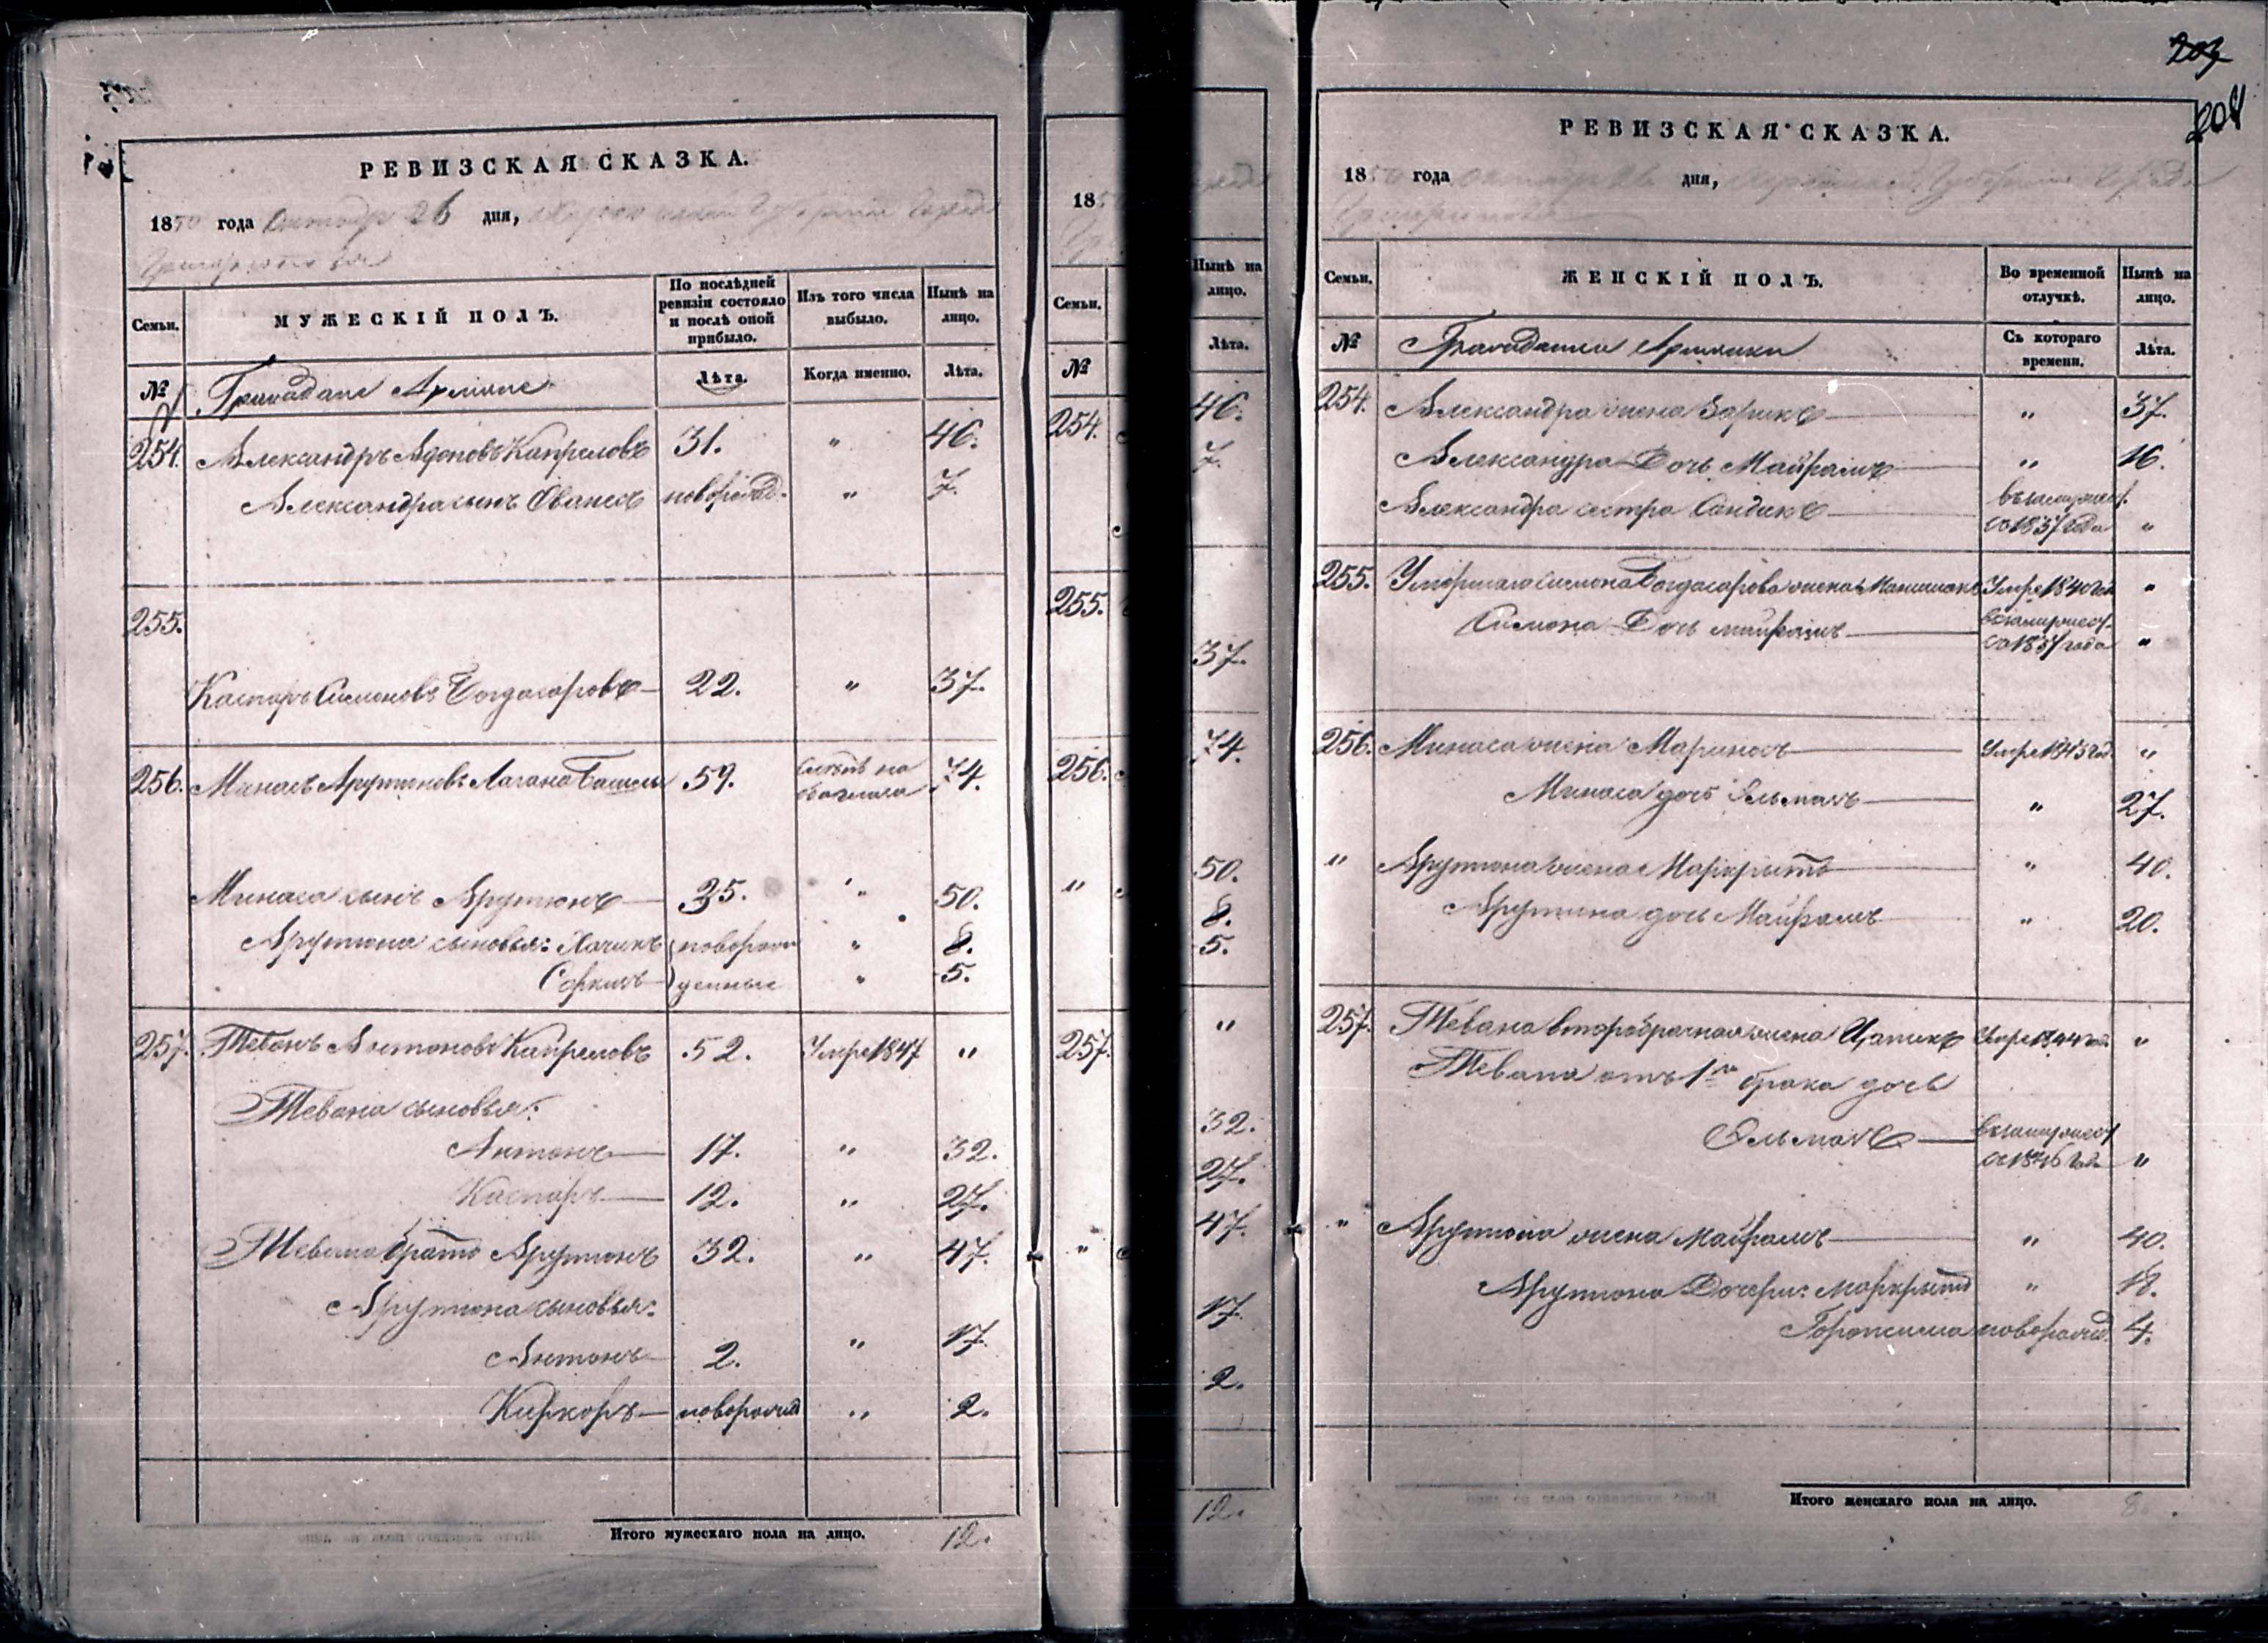 РЕВИЗСКАЯ СКАЗКА.
1850 года Октября 26 дня, Херсонской Губернии Города
Григориополя
Семьи.
МУЖЕСКІЙ ПОЛЪ.
По послѣдней ревизіи состояло и послѣ оной прибыло.
Изъ того числа выбыло.
Нынѣ на лицо.
№
Граждане Армяне
Лѣта.
Когда именно.
Лѣта.
254. Александръ Адоновъ Капреловъ 31. " 46.
Александра сынъ Ованесъ новорожд. " 7.
255.
Каспаръ Симоновъ Богдасаровъ 22. " 37.
256. Минасъ Арутиновъ 59. 74.
Минаса сынъ Арутюнъ 35. " 50.
Арутюна сыновья: Хачикъ новорож " 8.
Соркисъ денные " 5.
257. Теванъ Антоновъ Капреловъ 52. Умре 1847 "
Тевана сыновья:
Антонъ 17. " 32.
Каспаръ 12. " 27.
Тевана братъ Арутюнъ 32. " 47.
Арутюна сыновья:
Антонъ 2. " 17.
Киркоръ новорожд " 2.
Итого мужескаго пола на лицо. 12.
18
Семьи.
№
254.
255.
256.
"
257.
"
Нынѣ на лицо.
Лѣта.
46.
7.
37.
74.
50.
8.
5.
"
32.
27.
47.
17.
2.
12.
203
204
РЕВИЗСКАЯ СКАЗКА.
1850 года Октября 26 дня, Херсонской Губерніи Города
Григориополя
Семьи.
ЖЕНСКІЙ ПОЛЪ.
Во временной отлучкѣ.
Нынѣ на лицо.
№
Гражданки Армянки
Съ котораго времени.
Лѣта.
254. Александра жена Зарикъ " 37.
Александра дочь Майрамъ " 16.
Александра сестра Сандикъ въ замужест.
со 1837 года "
255. Умершаго Симона Богдасарова жена Умре 1840 год "
Симона дочь Майрамъ въ замужест.
со 1837 года "
256. Минаса жена Мариносъ Умре 1843 год "
Минаса дочь Эльмасъ " 27.
" Арутюна жена Маркрытъ " 40.
Арутина дочь Майрамъ " 20.
257. Тевана второбрачная жена Цатикъ Умре 1844 год "
Тевана отъ 1го брака дочь
Эльмасъ въ замужест
съ 1846 года "
" Арутюна жена Майрамъ " 40.
Арутюна дочери: Маркрытъ " 18.
новорожд. 4.
Итого женскаго пола на лицо. 8.